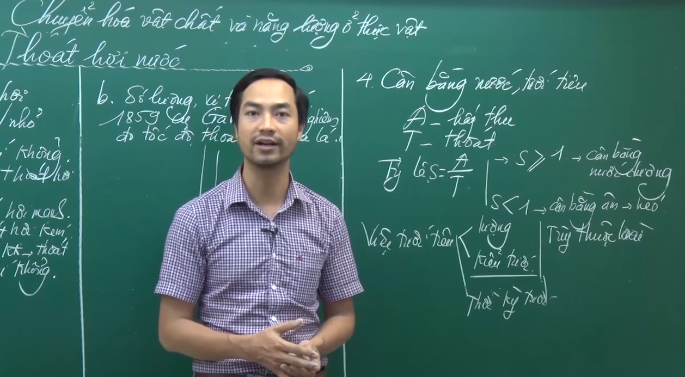 Chuyển hoá vật chất và năng lượng ở thực vật
Thoát hơi nước
hơi
nhỏ
không.
thoát hơi
hơi mạnh.
hơi kém
kk → thoát
không.
b. Số lượng, vị
1859 de Ga
do tốc độ thoá lá.
4. Cân bằng nước, tưới tiêu
A - hấp thu
T - thoát
Tỷ lệ S = A/T
→ S ≥ 1 → cân bằng
nước dương
S < 1 → cân bằng âm → héo
Việc tưới tiêu
lượng
kiểu tưới
Thời kỳ tưới
Tuỳ thuộc loài